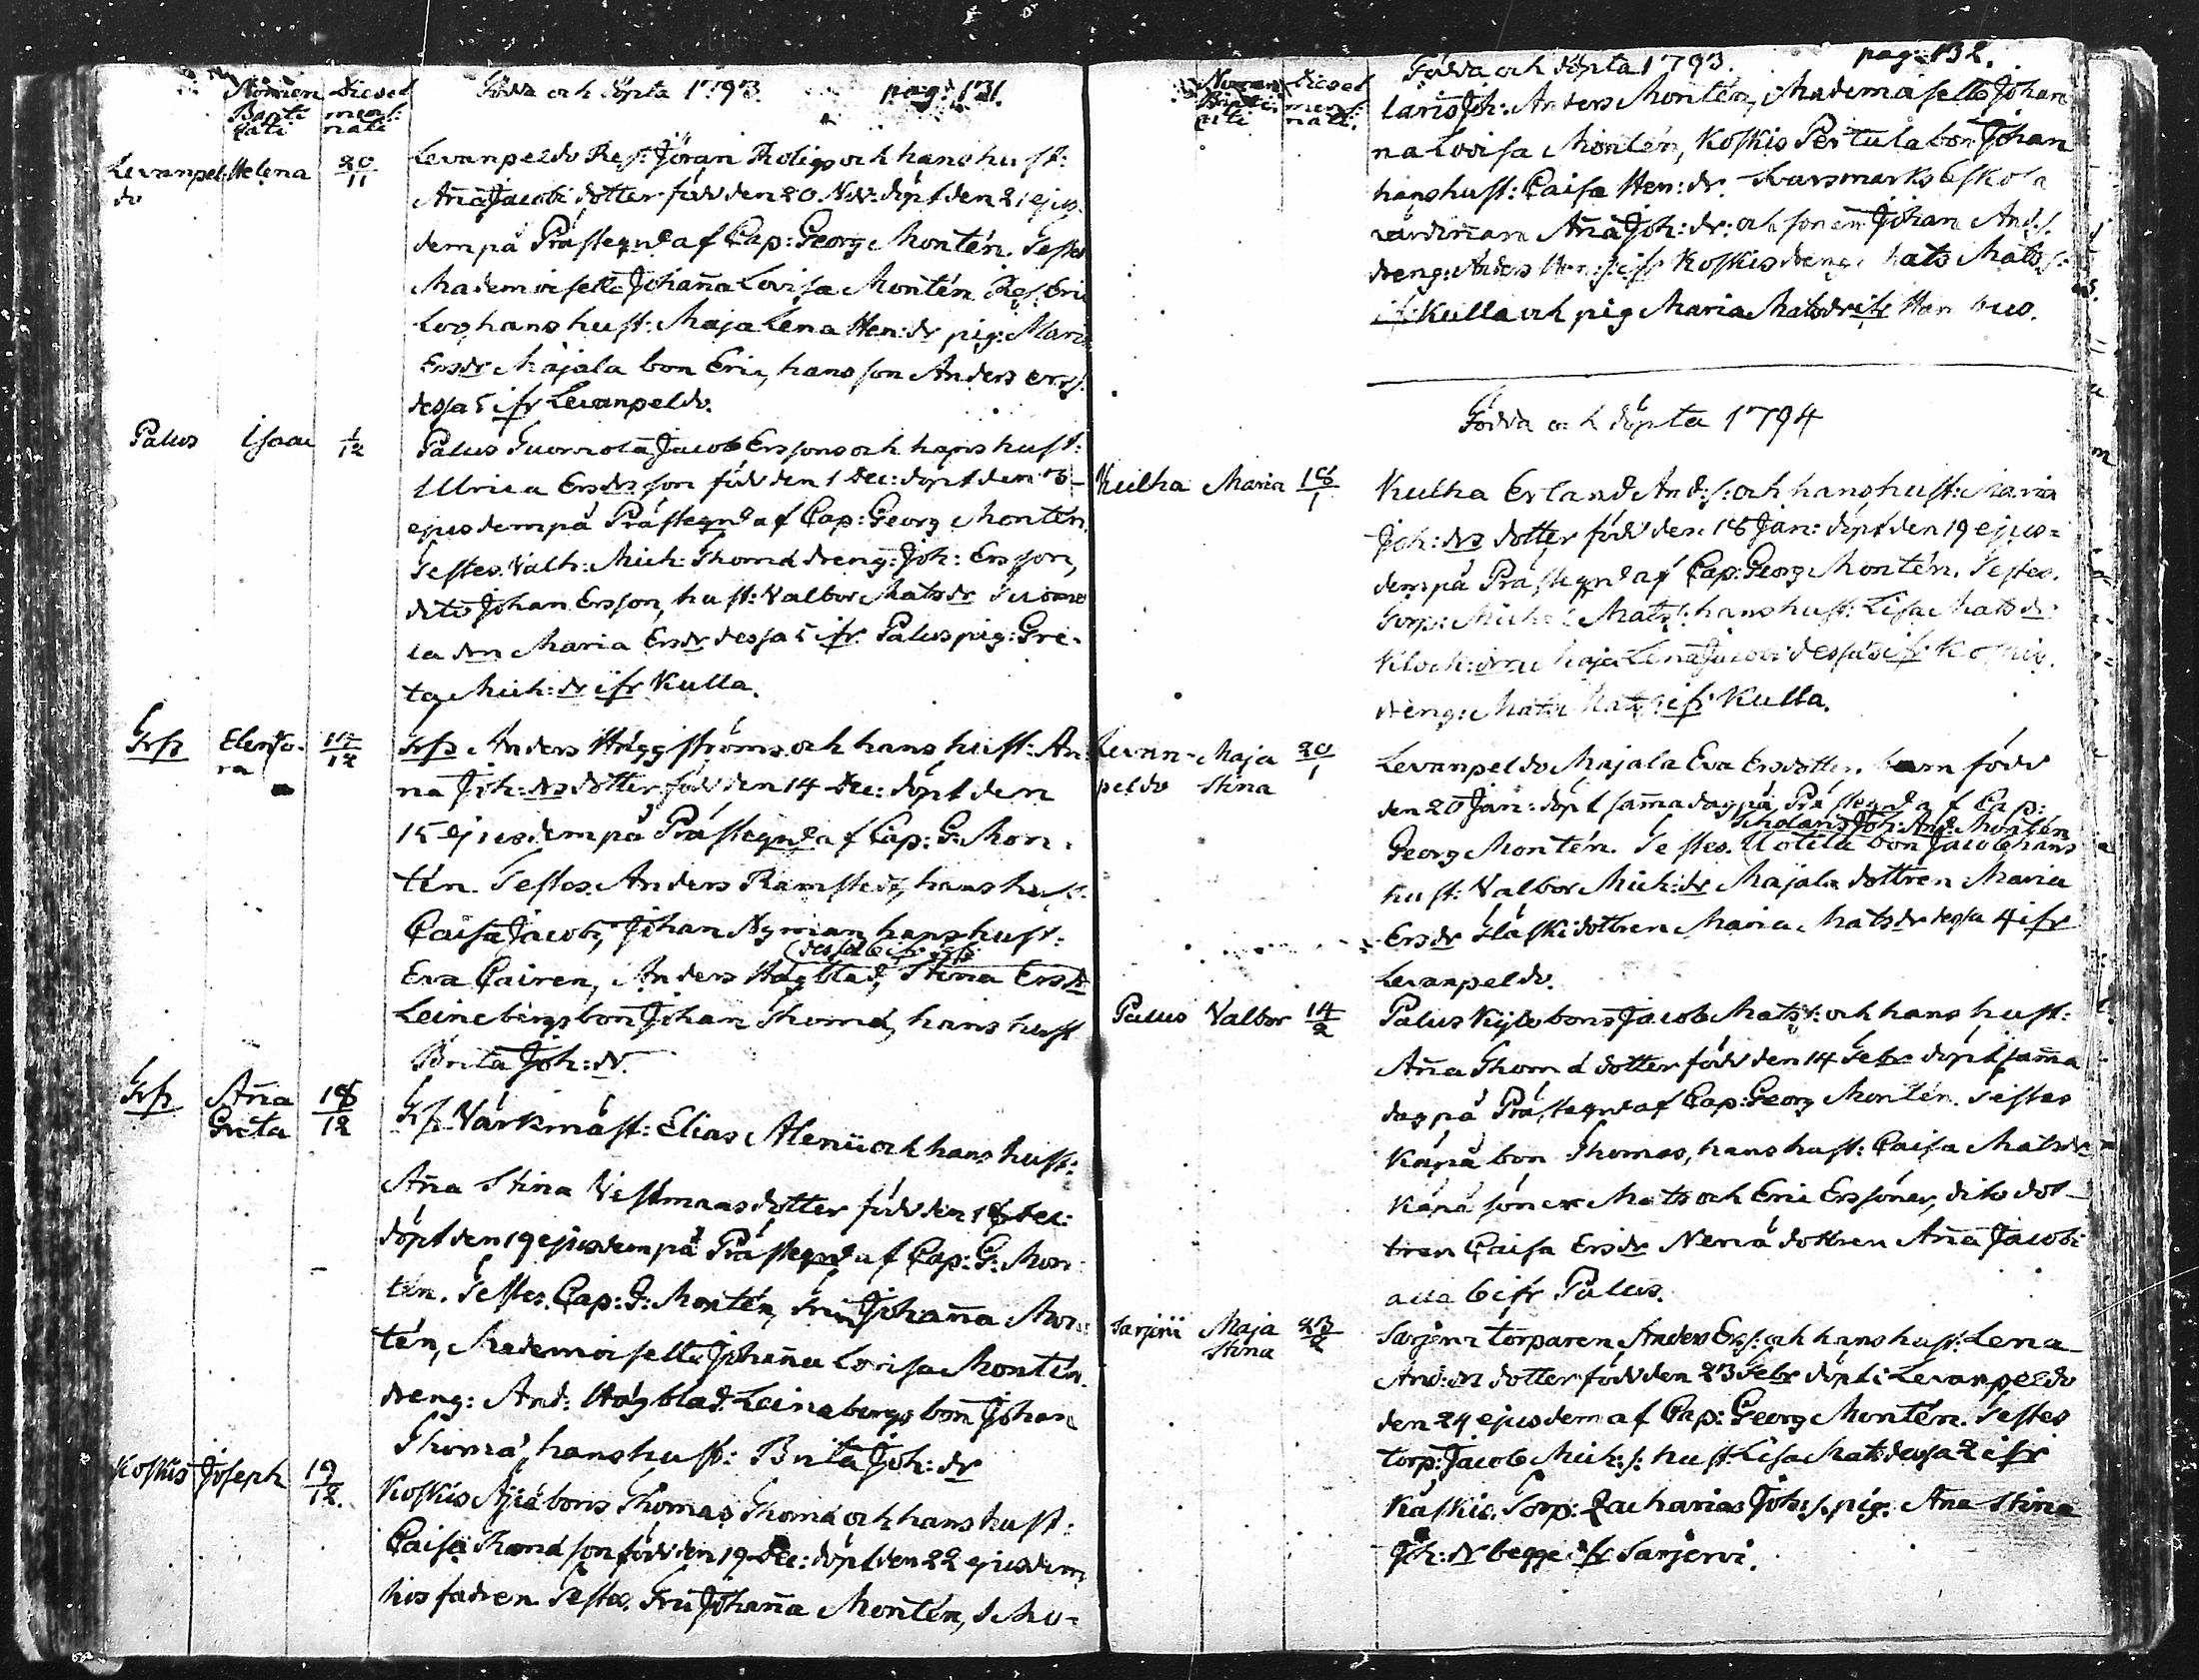 Nomen Dies et Födda och döpta 1793. pag: 131.
Bapti mens:
cati nati
Levanpel- Helena 20/11 Levanpeldo Res: Jöran Roligs och hans hust:
do Aña Jacobi dotter född den 20 Nov: döpt den 21 ejus
dem på Prästegnd af Cap: Georg Montén. Testes
Mademoiselle Johaña Lovisa Montén Res: Eric
Loo hans hust: Maja Lena Hen: dr pig: Maria
Ersdr Majala bon Eric, hans son Anders Erss.
dessa 5 ifr Levanpeldo.
Palus Isaac 1/12 Palus Tuorvola Jacob Erssons och hans hust:
Ulrica Ersdrs son född den 1 Dec: döpt den 8
ejusdem på Prästegnd af Cap: Georg Montén
Testes. Valh: Mich: Thomæ dreng: Joh: Ersson,
dito Johan Ersson, hust: Valbor Matsdr Tuorvo
la drn Maria Ersdr dessa 5 ifr. Palus pig: Gre-
ta Mich: dr ifr Kulla.
Trsk Eleno- 14/12 Trsk Anders Häggströms och hans hust: An
ra na Joh: drs dotter född den 14 Dec: döpt den
15 ejusdem på Prästegnd af Cap: G: Mon-
tén. Testes. Anders Ramstedt, hans hust:
Caisa Jacobi, Johan Nyman hans hust:
(dessa 6 ifr Trsk
Eva Cairen, Anders Högblad, Stina Ersdr
Leinebergs bon Johan Thomæ, hans hust
Brita Joh: dr.
Trsk Aña 18/12 Trsk Värkmäst: Elias Alenii och hans hust:
Greta
Aña Stina Vestmans dotter född den 18 Dec:
döpt den 19 ejusdem på Prästegnd af Cap: G: Mon-
tén. Testes. Cap: G: Montén, Fru Johaña Mon-
tén, Mademoiselle Johaña Lovisa Montén.
dreng: And: Högblad. Leinebergs bon Johan
Thomæ, hans hust: Brita Joh: dr
Koskis Joseph 19/12. Koskis Äijäbons Thomas Thomæ och hans hust:
Caisa Thomæ son född den 19 Dec: döpt den 22 ejusdem
hos fadren Testes. Fru Johaña Montén, Scho-
Nomen Dies et Födda och döpta 1793. pag: 132.
Bapti mens:
cati nati.
laris Joh: Anders Montén, Mademoiselle Johan
na Lovisa Montén, Koskis Pertula bon Johan
hans hust: Caisa Hen: dr. Svarsmarks Eskola
värdiñan Aña Joh: dr: och sonen Johan And: s.
dreng: Anders Hen: s: ifr Koskis dreng: Mats Mats s:
ifr Kulla och pig Maria Matsdr ifr
Födda och döpta 1794
Kulla Maria 18/1 Kulla Erland And: s: och hans hust: Maria
Joh: drs dotter född den 18 Jan: döpt den 19 ejus=
dem på Prästegnd af Cap: Georg Montén. Testes.
Torp: Michel Mats s: hans hust: Lisa Matsdr
Klock: drn Maja Lena Jacobi dessa 3 ifr Koskis.
dreng: Mats Mats s: ifr Kulla.
Levan- Maja 20/1 Levanpeldo Majala Eva Ersdotter. barn född
peldo Stina den 20 Jan: döpt saṁa dag på Prästegnd af Cap:
Scholaris Joh: And: Montén
Georg Montén. Testes. Uotila bon Jacob hans
hust: Valbor Mich: dr Majala dottren Maria
Ersdr Släski dottren Maria Matsdr dessa 4 ifr
Levanpeldo.
Palus Valbor 14/2 Palus Kylä bons Jacob Mats s: och hans hust:
Aña Thomæ dotter född den 14 Febr döpt saṁa
dag på Prästegnd af Cap: Georg Montén. Testes
Känä bon Thomas, hans hust: Caisa Matsdr
Känä söner Mats och Eric Erssöner, dito dot-
tren Caisa Ersdr Neriä dottren Aña Jacobi
alla 6 ifr Palus.
Sarjervi Maja 23/2 Sarjervi torparen Anders Ers s: och hans hust: Lena
Stina And: drs dotter född den 23 Febr döpt i Levanpeldo
den 24 ejusdem af Cap: Georg Montén. Testes
torp: Jacob Mich: s: hust Lisa Matsdr dessa 2 ifr
Käskis. Torp: Zacharias Joh: s. pig. Aña Stina
Joh: dr begge ifr Sarjervi.